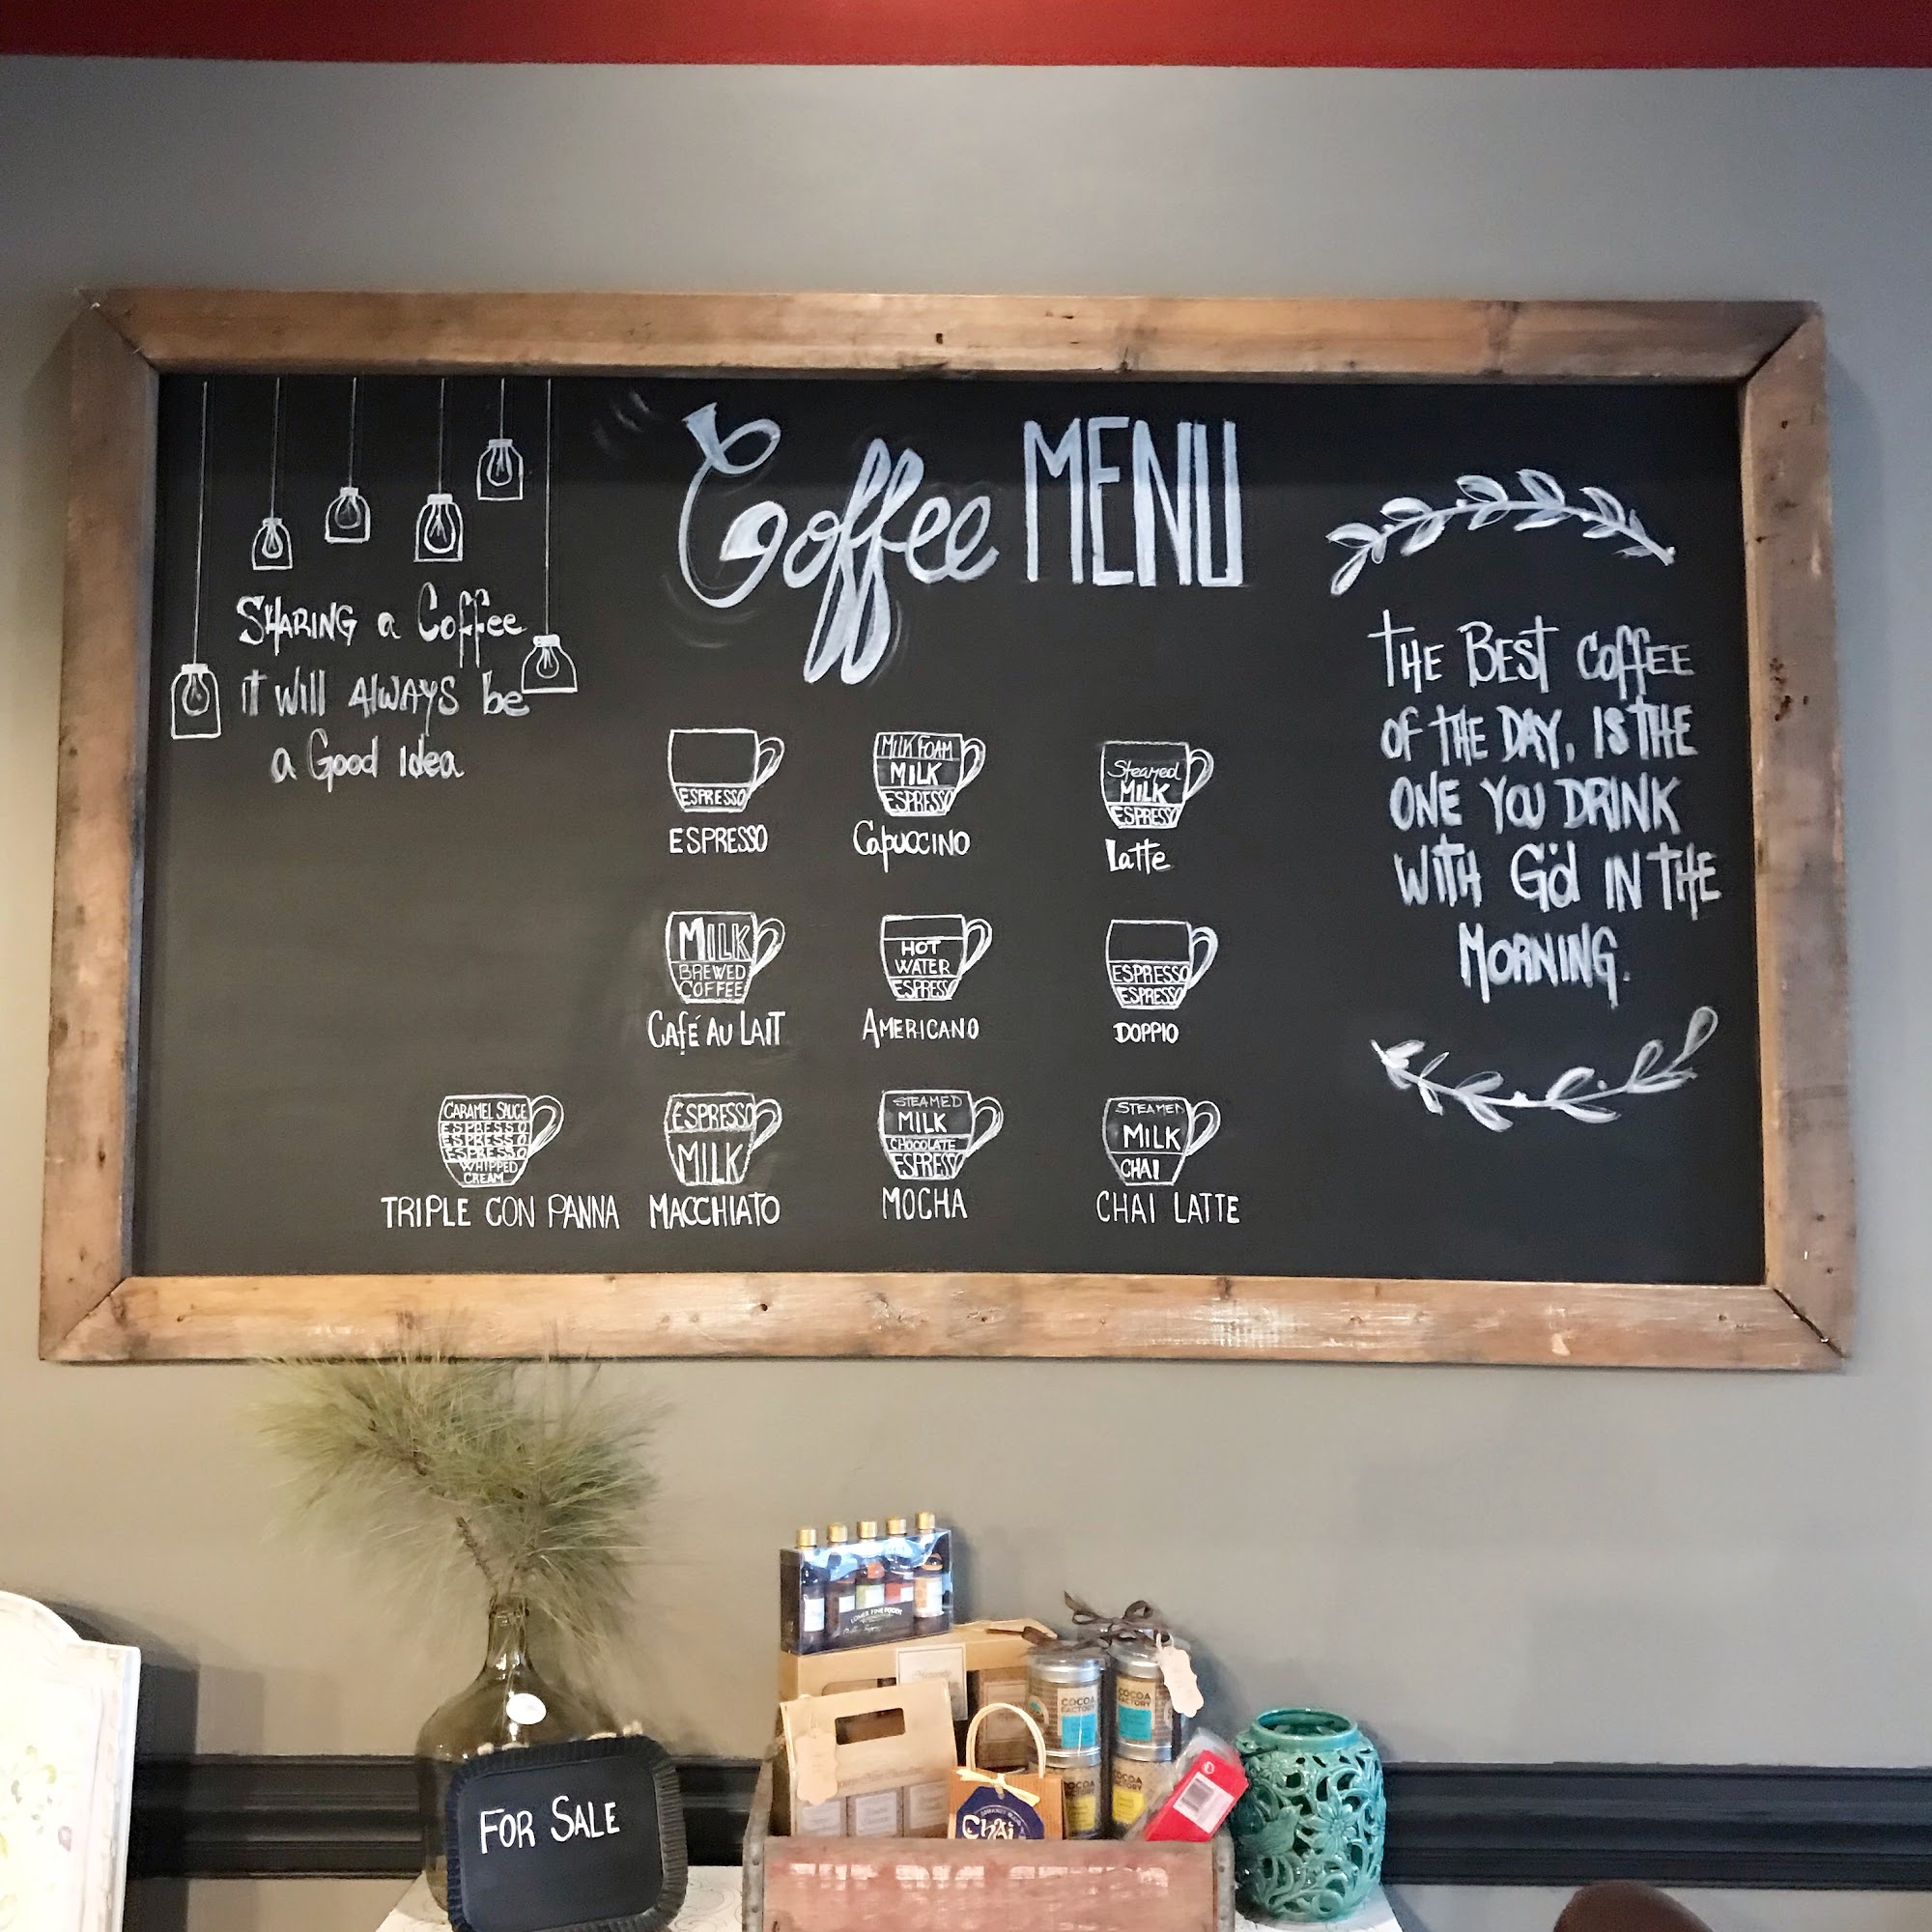 Coffee MENU
SHARING a Coffee
it will ALWAYS be
a Good idea
THE BEST COFFEE
OF THE DAY, IS THE
ONE YOU DRINK
WITH G'd IN THE
MORNING.
ESPRESSO
ESPRESSO
MILK FOAM
MILK
ESPRESSO
Capuccino
Steamed
MILK
ESPRESS
Latte
MILK
BREWED
COFFEE
Café AU LAIT
HOT
WATER
ESPRESS
AMERICANO
ESPRESSO
ESPRESSO
DOPPIO
CARAMEL SAUCE
ESPRESSO
ESPRESSO
ESPRESSO
WHIPPED
CREAM
TRIPLE CON PANNA
ESPRESSO
MILK
MACCHIATO
STEAMED
MILK
CHOCOLATE
ESPRESSO
MOCHA
STEAMED
MILK
CHAI
CHAI LATTE
COCOA
FACTORY
COCOA
FACTORY
COCOA
COCOA
Chai
FOR SALE